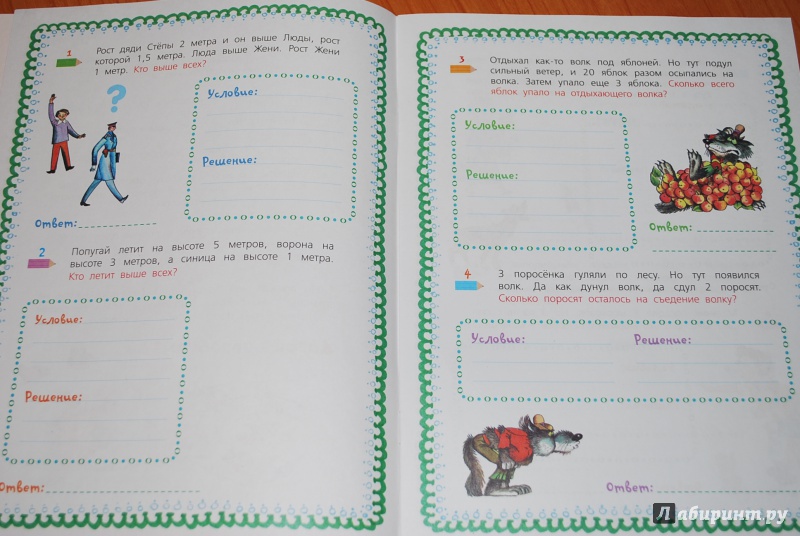 1
Рост дяди Стёпы 2 метра и он выше Люды, рост
которой 1,5 метра. Люда выше Жени. Рост Жени
1 метр. Кто выше всех?
?
Условие:
Решение:
Ответ:
2
Попугай летит на высоте 5 метров, ворона на
высоте 3 метров, а синица на высоте 1 метра.
Кто летит выше всех?
Условие:
Решение:
Ответ:
3
Отдыхал как-то волк под яблоней. Но тут подул
сильный ветер, и 20 яблок разом осыпались на
волка. Затем упало еще 3 яблока. Сколько всего
яблок упало на отдыхающего волка?
Условие:
Решение:
Ответ:
4
3 поросёнка гуляли по лесу. Но тут появился
волк. Да как дунул волк, да сдул 2 поросят.
Сколько поросят осталось на съедение волку?
Условие: Решение:
Ответ:
Лабиринт.ру